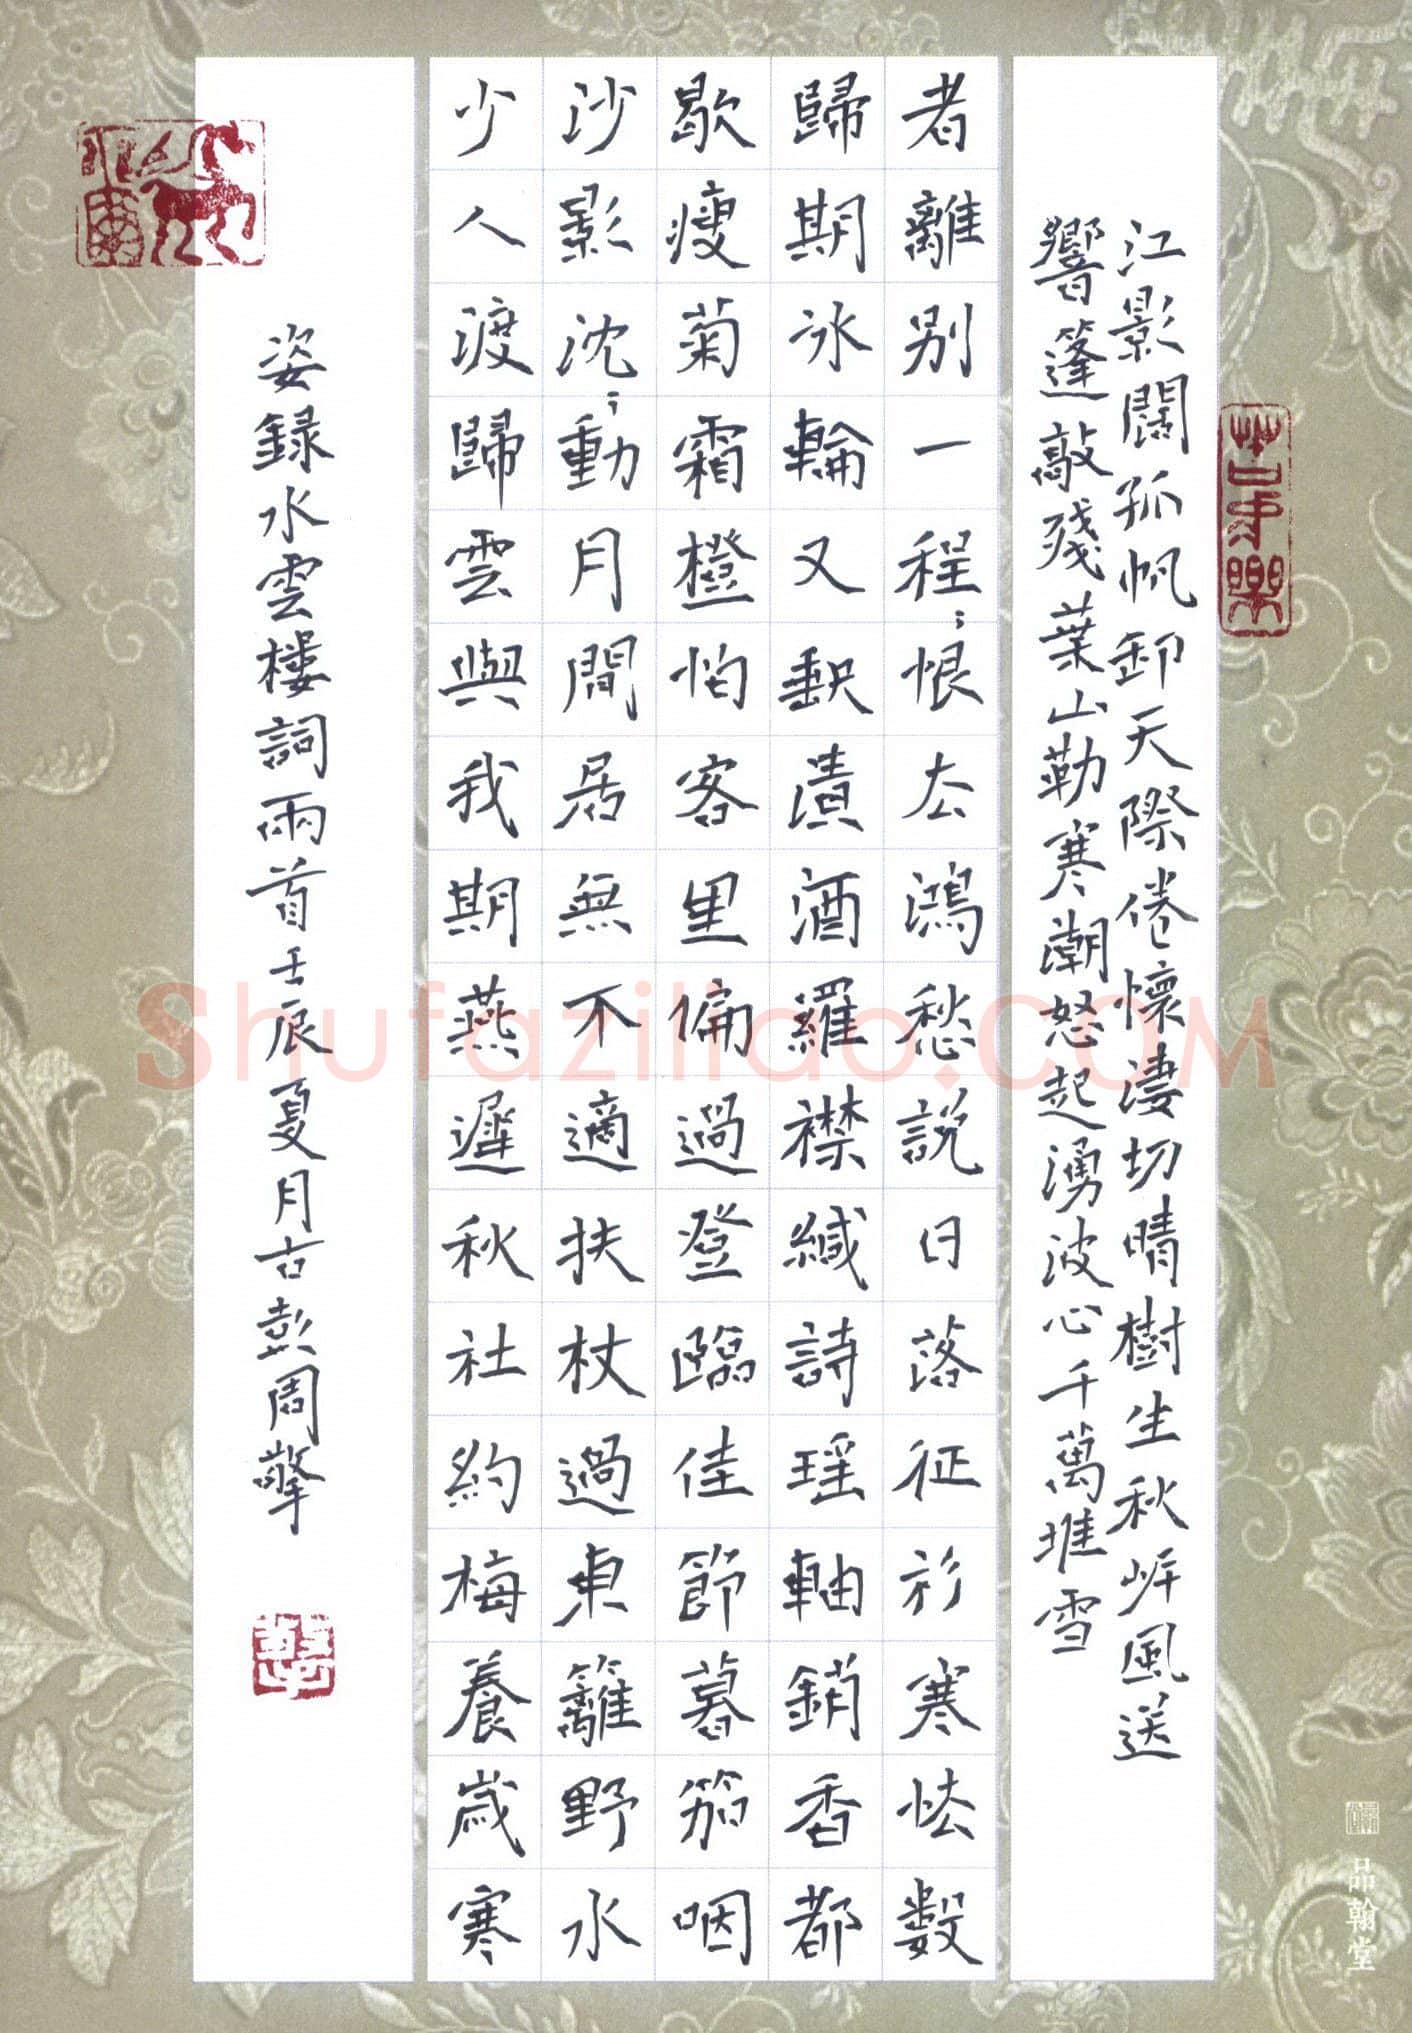 江影闊孤帆卸天際倦懷淒切晴樹生秋岸風送
響篷敲殘葉山勒寒潮怒起湧波心千萬堆雪
者離別一程〻恨去鴻愁說日落征衫寒怯數
歸期冰輪又缺漬酒羅襟緘詩瑤軸銷香都
歇瘦菊霜橙怕客里偏過登臨佳節暮笳咽
沙影沈〻動月間居無不適扶杖過東籬野水
少人渡歸雲與我期燕遲秋社約梅養歲寒
姿録水雲樓詞兩首壬辰夏月古彭周擎
品翰堂
Shufaziliao.COM